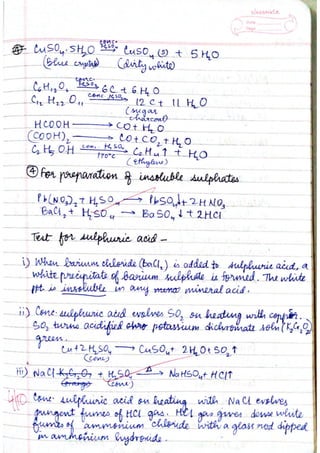 classmate
Date
Page
CuSO₄·5H₂O —conc. H₂SO₄→ CuSO₄(s) + 5H₂O
(blue crystal) (dirty white)
C₆H₁₂O₆ —conc. H₂SO₄→ 6C + 6H₂O
C₁₂H₂₂O₁₁ —conc. H₂SO₄→ 12C + 11H₂O
(sugar charcoal)
HCOOH → CO + H₂O
(COOH)₂ → CO + CO₂ + H₂O
C₂H₅OH —conc. H₂SO₄ 170°C→ C₂H₄↑ + H₂O
(ethylene)
④ For preparation of insoluble sulphates
Pb(NO₃)₂ + H₂SO₄ → PbSO₄↓ + 2HNO₃
BaCl₂ + H₂SO₄ → BaSO₄↓ + 2HCl
Test for sulphuric acid -
i) When barium chloride (BaCl₂) is added to sulphuric acid, a
white precipitate of barium sulphate is formed. The white
ppt. is insoluble in any mineral acid.
ii) Conc. sulphuric acid evolves SO₂ on heating with copper.
SO₂ turns acidified potassium dichromate soln (K₂Cr₂O₇)
green.
Cu + 2H₂SO₄ → CuSO₄ + 2H₂O + SO₂↑
(conc)
iii) NaCl + H₂SO₄ —Δ→ NaHSO₄ + HCl↑
(conc)
Conc. sulphuric acid on heating with NaCl evolves
pungent fumes of HCl gas. HCl gas gives dense white
fumes of ammonium chloride with a glass rod dipped
in ammonium hydroxide.